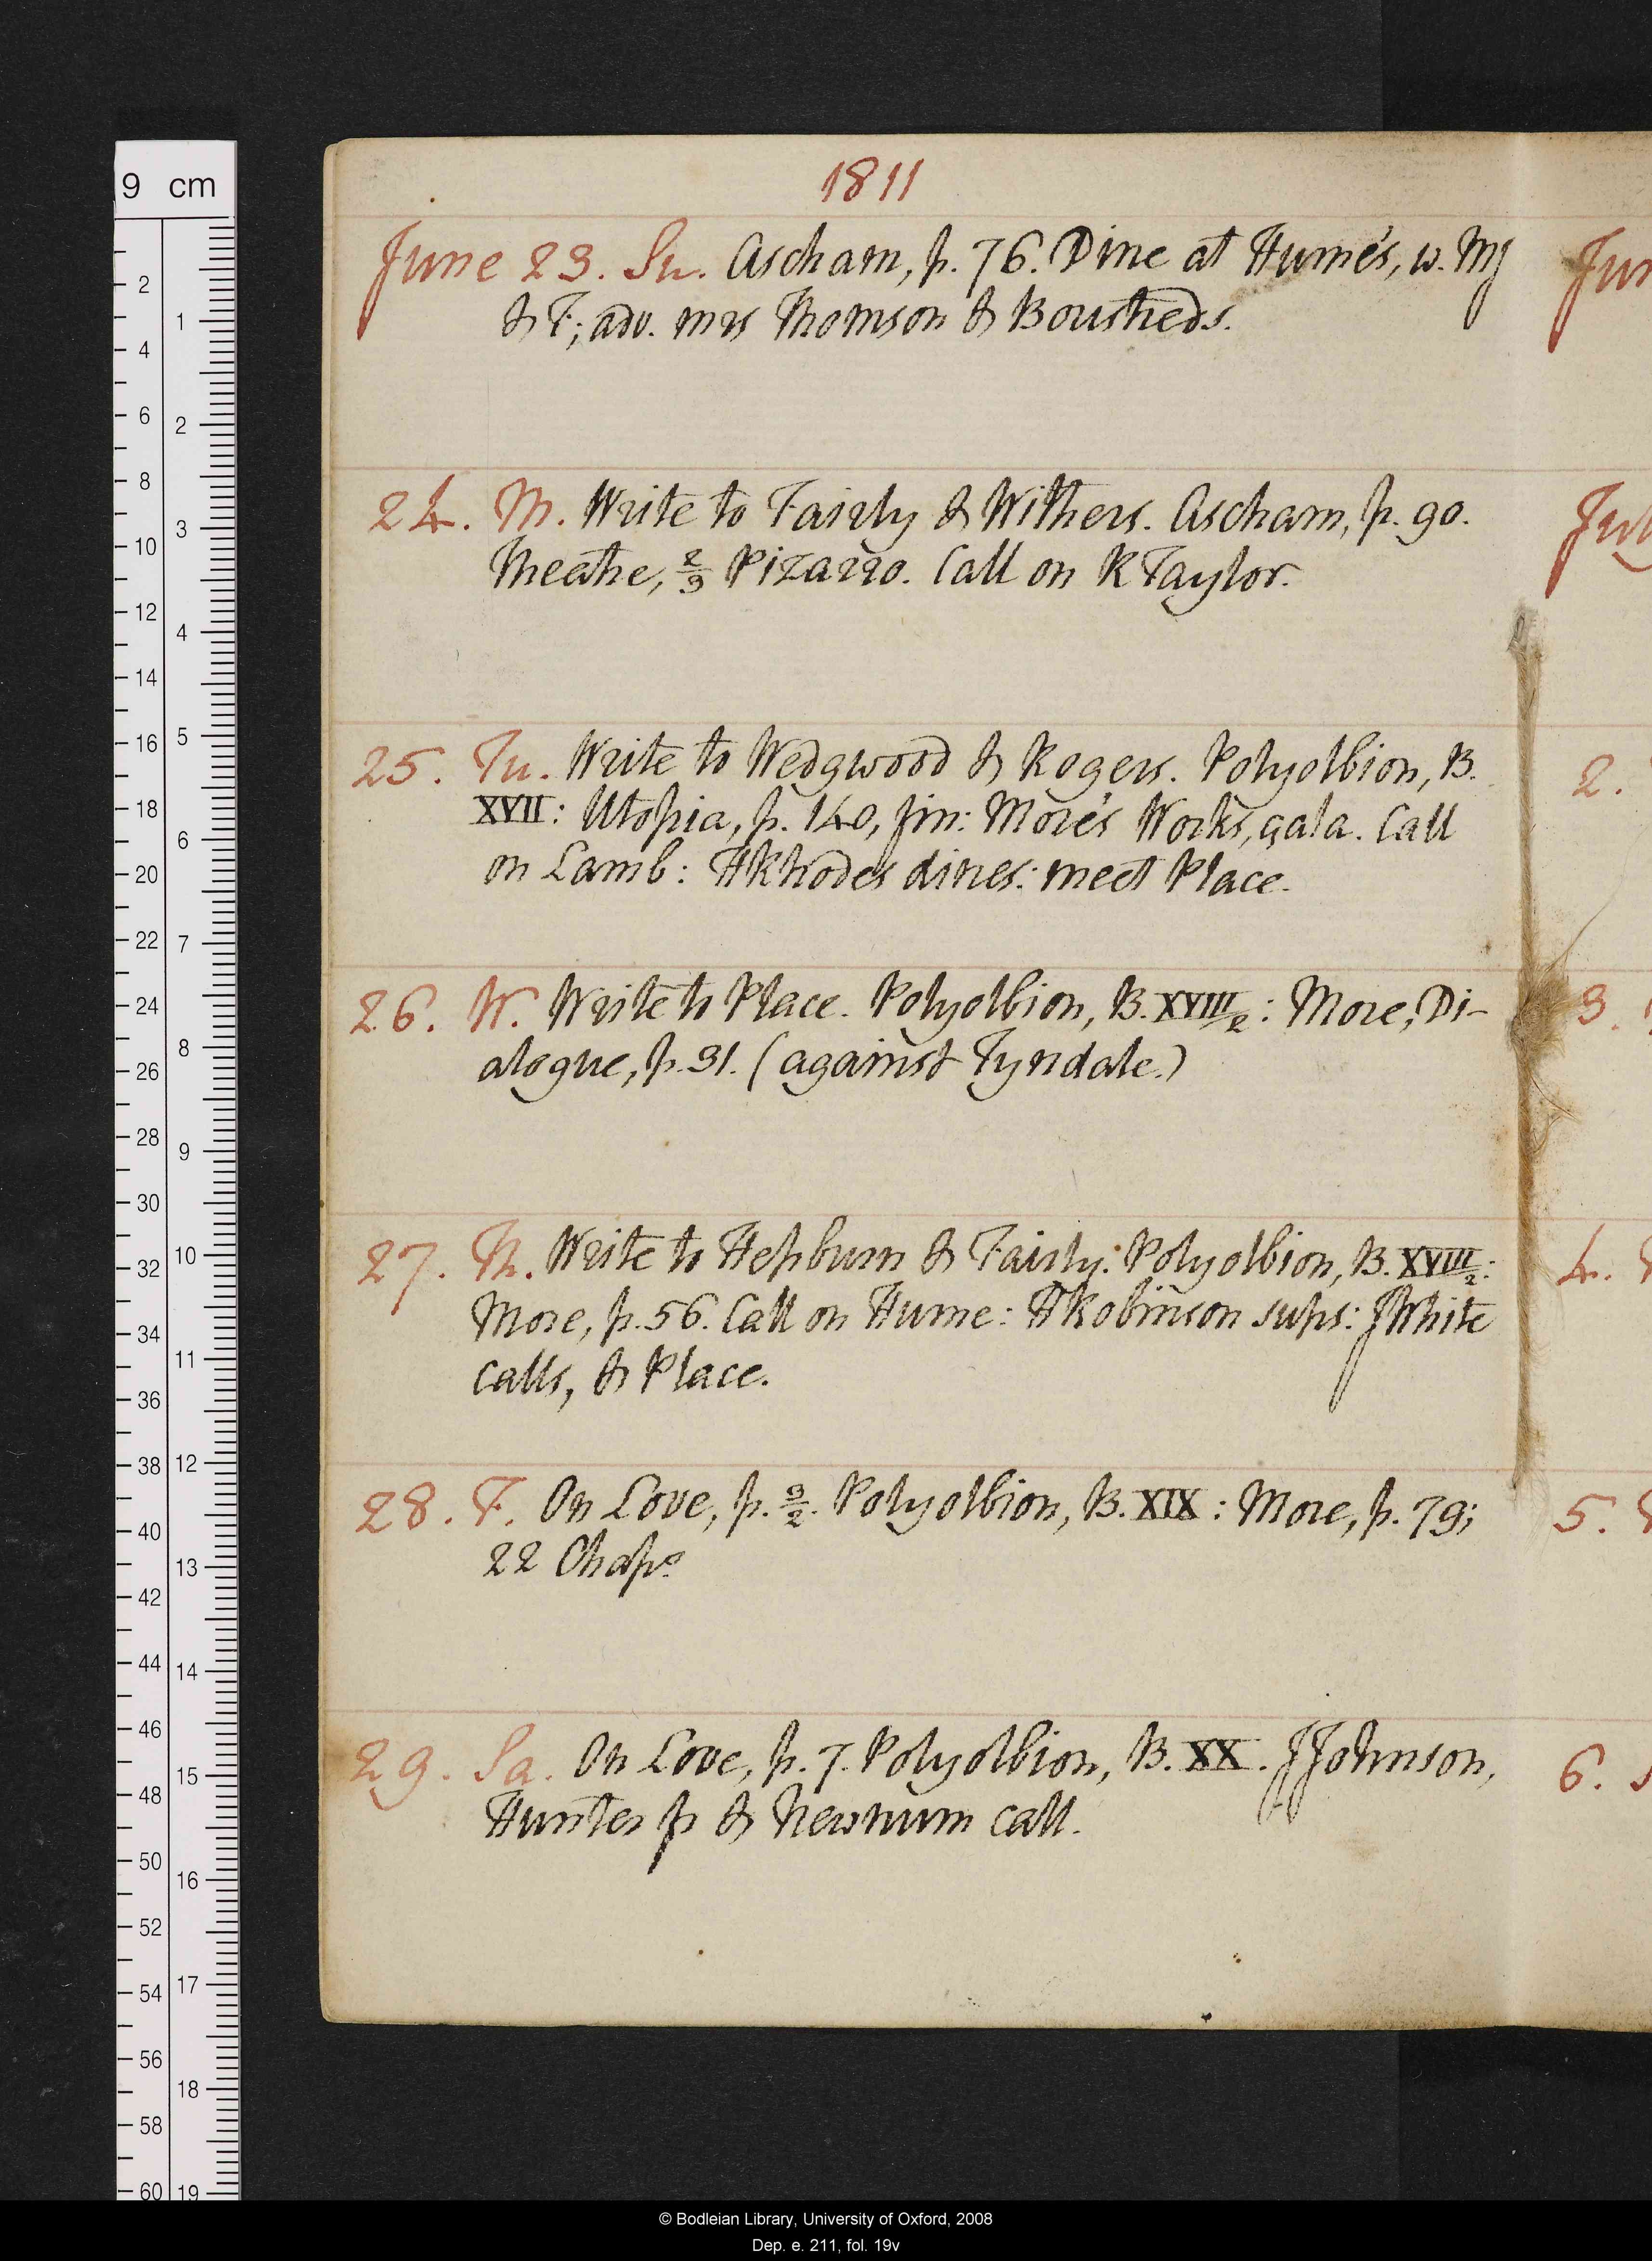 1811
June 23. Su. Ascham, p. 76. Dine at Hume's, w. MJ
& F; adv. mrs Thomson & Bousteds.
24. M. Write to Fairly & Withers. Ascham, p. 90.
Theatre, 2/3 Pizarro. Call on RTaylor.
25. Tu. Write to Wedgwood & Rogers. Polyolbion, B.
XVII: Utopia, p. 140, fin: More's Works, çala. Call
on Lamb: HRhodes dines: meet Place.
26. W. Write to Place. Polyolbion, B. XVIII/2: More, Di-
alogue, p. 31. (against Tyndale.)
27. Th. Write to Hepburn & Fairly: Polyolbion, B. XVIII/2:
More, p. 56. Call on Hume: HRobinson sups: JWhite
calls, & Place.
28. F. On Love, p. 3/2. Polyolbion, B. XIX: More, p. 79;
22 Chaps
29. Sa. On Love, p. 7. Polyolbion, B. XX. JJohnson,
Hunter p & Newnum call.
Jun
Jul
2.
3.
4.
5.
6.
9 cm
2 4 6 8 10 12 14 16 18 20 22 24 26 28 30 32 34 36 38 40 42 44 46 48 50 52 54 56 58 60
1 2 3 4 5 6 7 8 9 10 11 12 13 14 15 16 17 18 19
© Bodleian Library, University of Oxford, 2008
Dep. e. 211, fol. 19v